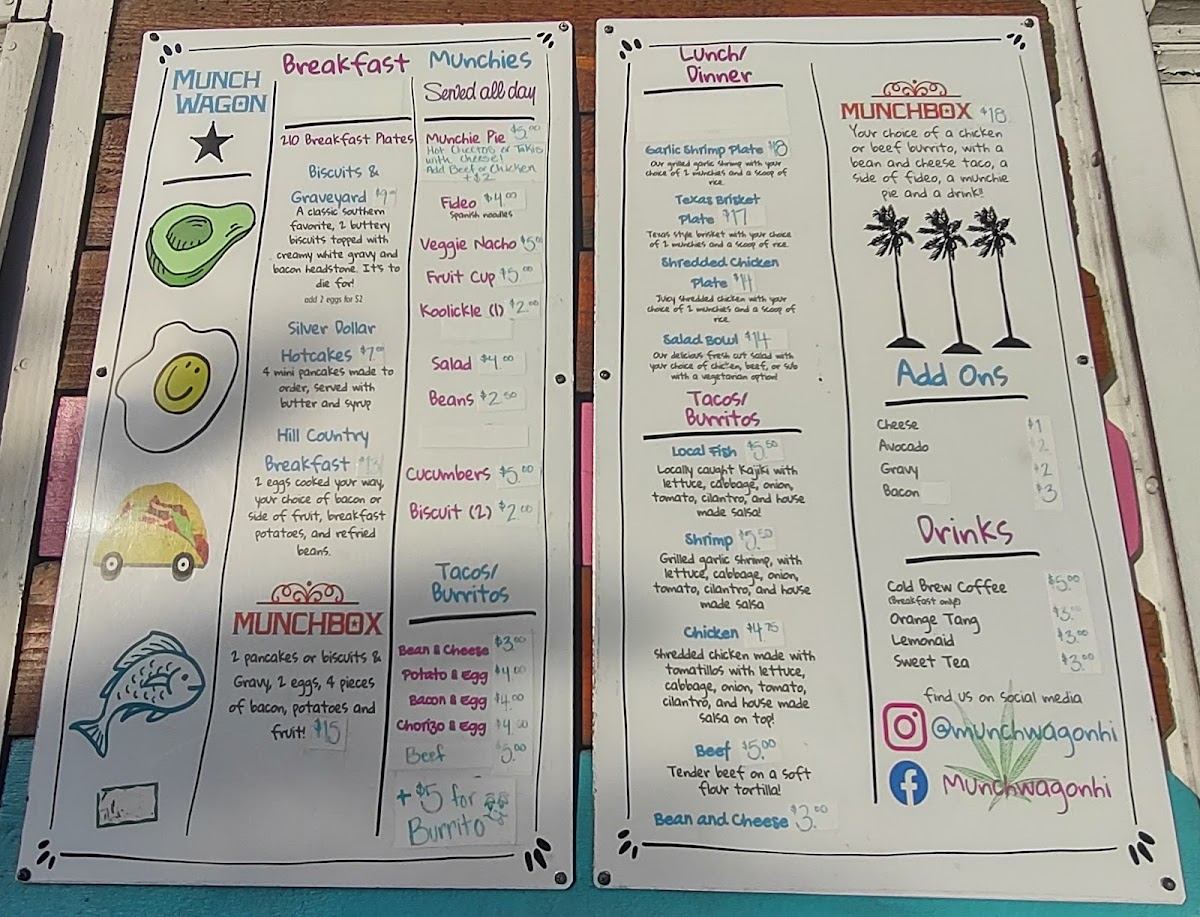 MUNCH
WAGON
Breakfast
210 Breakfast Plates
Biscuits &
Graveyard
A classic southern
favorite, 2 buttery
biscuits topped with
creamy white gravy and
bacon headstone. It's to
die for!
add 2 eggs for $2
Silver Dollar
Hotcakes $7.00
4 mini pancakes made to
order, served with
butter and syrup
Hill Country
Breakfast $13
2 eggs cooked your way,
your choice of bacon or
side of fruit, breakfast
potatoes, and refried
beans.
MUNCHBOX
2 pancakes or biscuits &
Gravy, 2 eggs, 4 pieces
of bacon, potatoes and
fruit! $15
Munchies
Served all day
Munchie Pie $5.00
Hot Cheetos or Takis
with cheese!
Add Beef or Chicken
+$2
Fideo $4.00
Spanish noodles
Veggie Nacho $5.00
Fruit Cup $5.00
Koolickle (1) $2.00
Salad $4.00
Beans $2.50
Cucumbers $5.00
Biscuit (2) $2.00
Tacos/
Burritos
Bean & Cheese $3.00
Potato & Egg $4.00
Bacon & Egg $4.00
Chorizo & Egg
Beef $5.00
+ $5 for
Burrito
Lunch/
Dinner
Garlic Shrimp Plate
Our grilled garlic shrimp with your
choice of 2 munchies and a scoop of
rice.
Texas Brisket
Plate $17
Texas style brisket with your choice
of 2 munchies and a scoop of rice.
Shredded Chicken
Plate $14
Juicy shredded chicken with your
choice of 2 munchies and a scoop of
rice.
Salad Bowl $14
Our delicious fresh cut salad with
your choice of chicken, beef, or sub
with a vegetarian option!
Tacos/
Burritos
Local Fish $5.50
Locally caught Kajiki with
lettuce, cabbage, onion,
tomato, cilantro, and house
made salsa!
Shrimp $5.50
Grilled garlic shrimp, with
lettuce, cabbage, onion,
tomato, cilantro, and house
made salsa
Chicken $4.75
Shredded chicken made with
tomatillos with lettuce,
cabbage, onion, tomato,
cilantro, and house made
salsa on top!
Beef $5.00
Tender beef on a soft
flour tortilla!
Bean and Cheese $3.00
MUNCHBOX $18.
Your choice of a chicken
or beef burrito, with a
bean and cheese taco, a
side of fideo, a munchie
pie and a drink!!
Add Ons
Cheese $1
Avocado $2
Gravy $2
Bacon $3
Drinks
Cold Brew Coffee $5.00
(Breakfast only!)
Orange Tang $3.00
Lemonaid $3.00
Sweet Tea $3.00
find us on social media
@munchwagonhi
Munchwagonhi